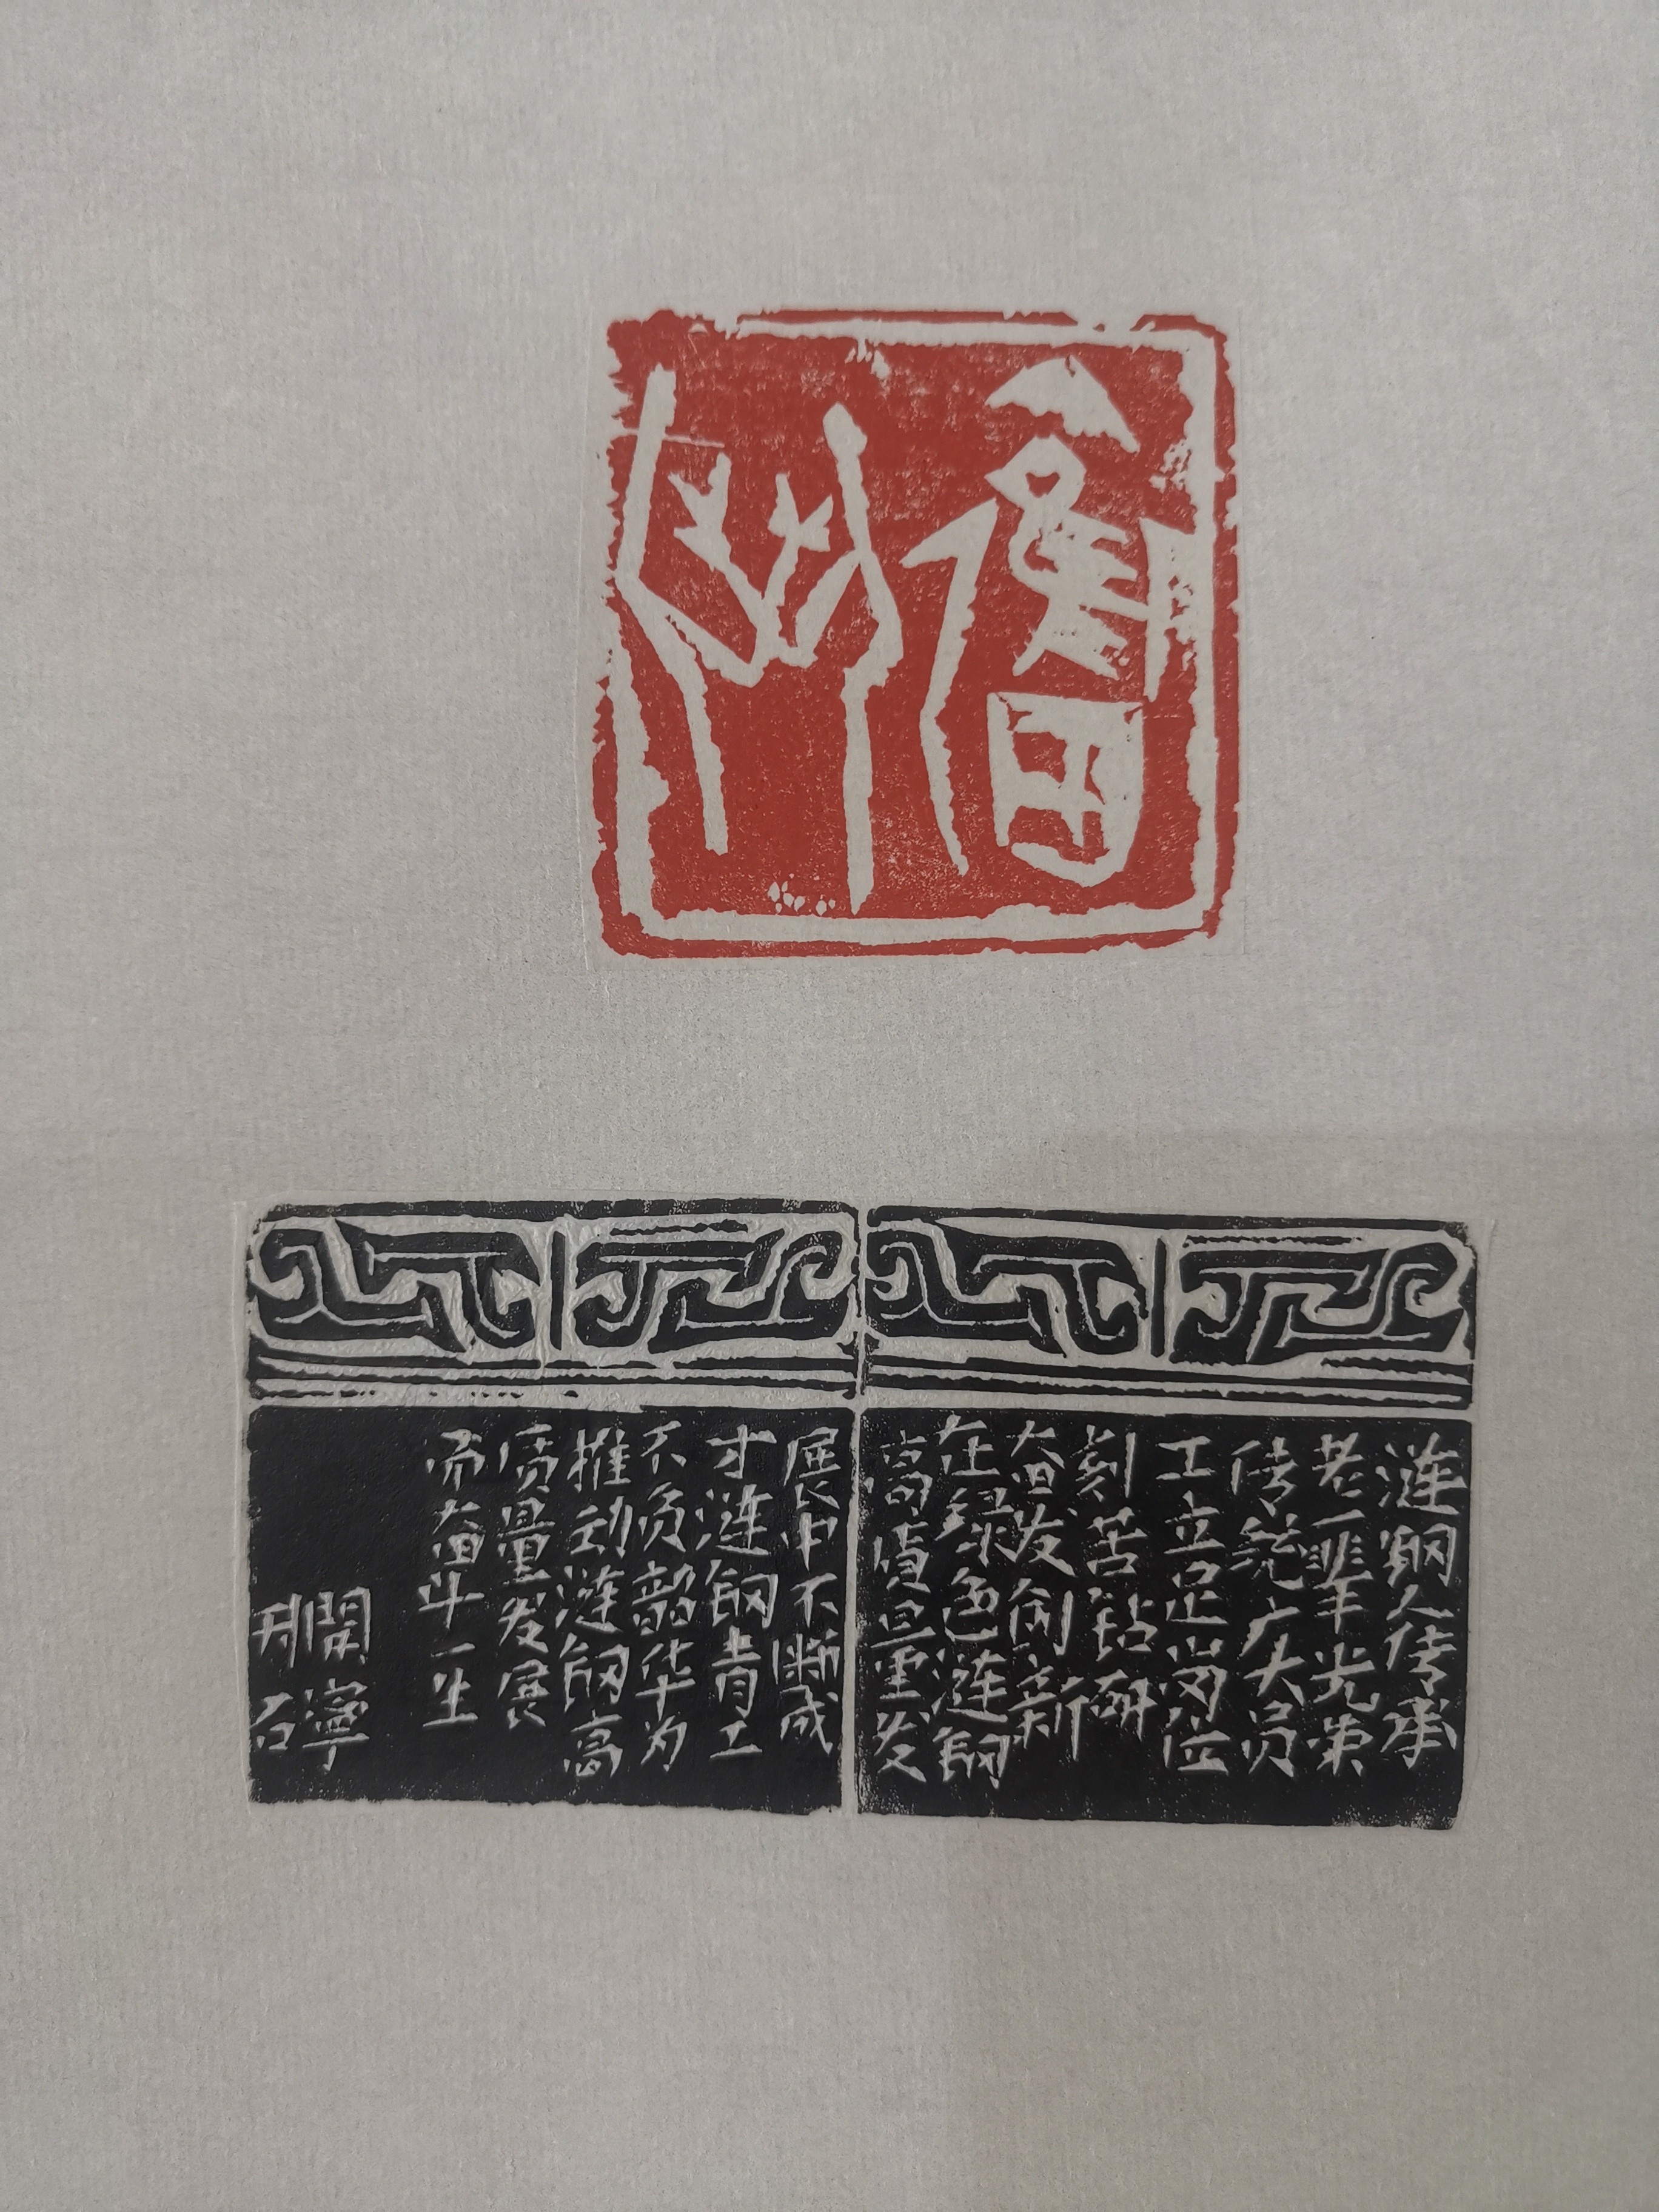 奮鬥
涟钢人传承
老一辈光荣
传统广大员
工立足岗位
刻苦钻研
奋发向新
在绿色涟钢
高质量发
展中不断成
才涟钢青工
不负韶华为
推动涟钢高
质量发展
而奋斗一生
開寧
刊石